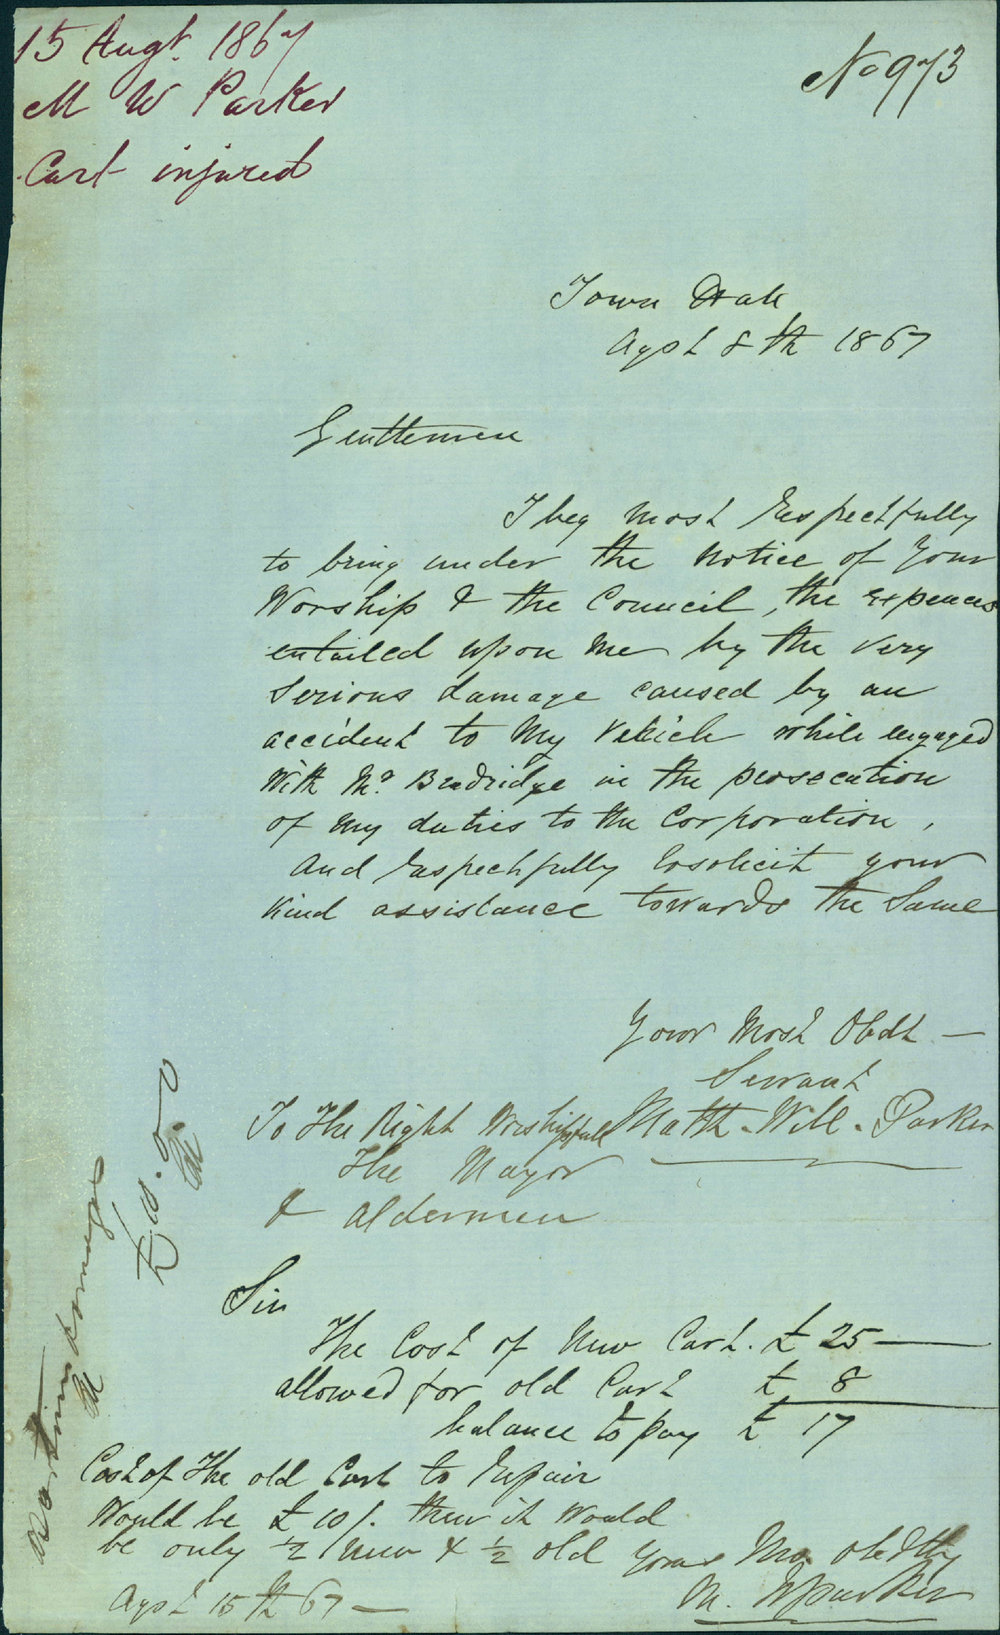 15 Augt. 1867
M W Parker
Cart injured
No 973
Town Hall
Agst 8th 1867
Gentlemen
I beg most respectfully
to bring under the notice of your
Worship & the Council, the expences
entailed upon me by the very
serious damage caused by an
accident to my Vehicle while engaged
With Mr. in the prosecution
of my duties to the Corporation,
and respectfully to solicit your
kind assistance towards the same
Your Most Obdt —
Servant
Matth. Will. Parker
To The Right Worshipfull
The Mayor
& Aldermen
Sir
The Cost of New Cart. £ 25 —
allowed for old Cart £ 8
balance to pay £ 17
Cost of The old Cart to repair
Would be £ 10/. then it would
be only ½ new & ½ old
Yours Mo. obedtly
M. W Parker
Agst 15th 67 —
£10.0.0
damage